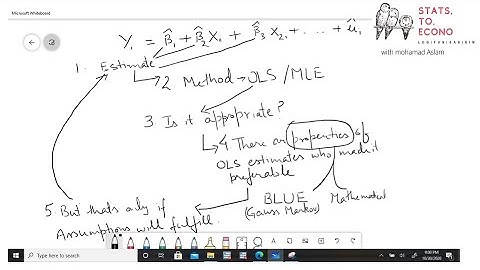 Microsoft Whiteboard
STATS,
TO,
ECONO
with mohamad Aslam
Yi = β̂1 + β̂2 X1 + β̂3 X2i + ... + û1
1. Estimate
2 Method → OLS / MLE
3. Is it appropriate?
4 There are properties of
OLS estimates who made it
preferable
BLUE
(Gauss Markov)
Mathematical
5. But thats only if
Assumptions will fulfill.
Type here to search
9:00 PM
10/30/2020